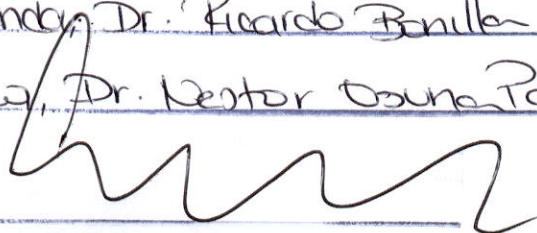 nda, Dr. Ricardo Bonilla
a, Dr. Nestor Osuna Pa